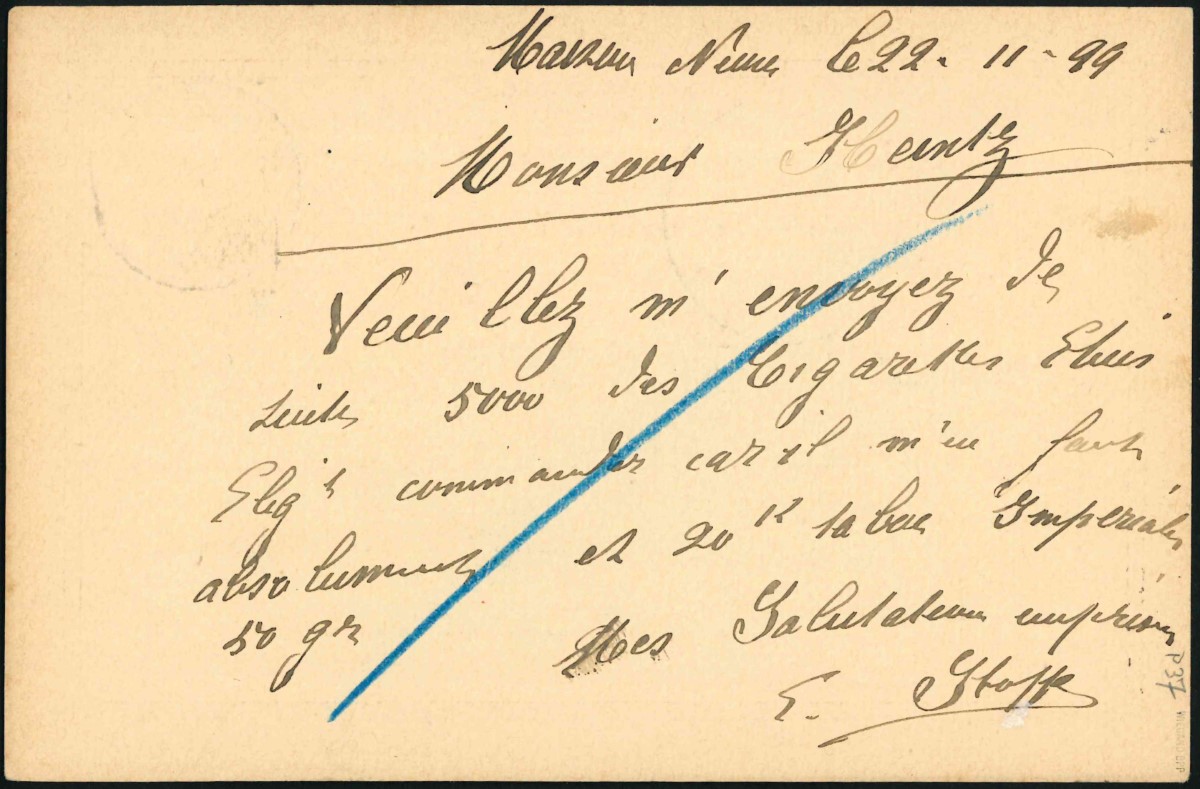 Maison Neuve le 22. 11 - 99
Monsieur Heintz
Veuillez m'envoyez de
suite 5000 des Cigarettes Etuis
Eleg^t commander car il m'en faut
absolument et 20^K tabac Impériales
50 gr Mes Salutation
E. Stoff
P37